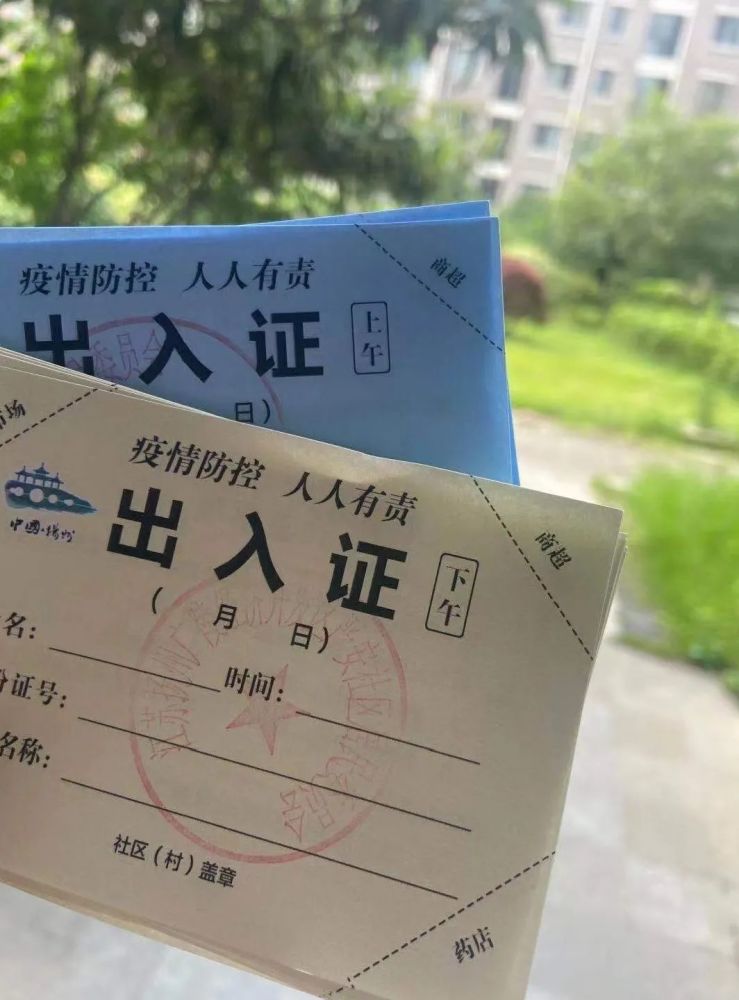 疫情防控 人人有责
商超
出入证
上午
委员会
日)
市场
疫情防控 人人有责
商超
中國·揚州
出入证
下午
( 月 日)
名:
时间:
份证号:
名称:
社区(村)盖章
药店